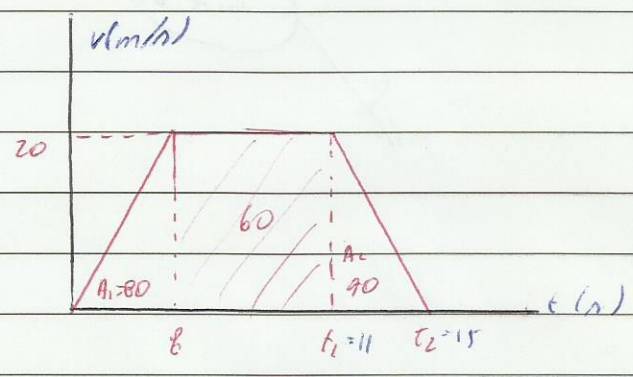 v(m/s)
20
60
A₁=80
A₂
40
t(s)
8
t₁=11 t₂=15